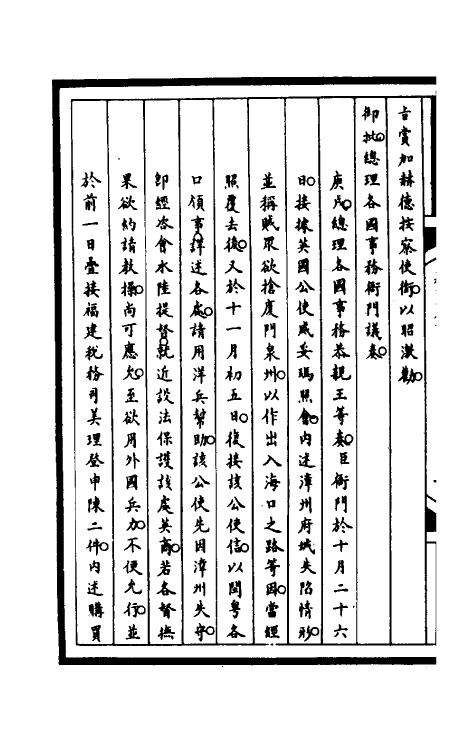 旨賞加赫德按察使銜以昭激勸。
御批。總理各國事務衙門議奏。
庚戌。總理各國事務恭親王等奏。臣衙門於十月二十六
日。接據英國公使威妥瑪照會。內述漳州府城失陷情形。
並稱賊眾欲搶廈門泉州。以作出入海口之路等因。當經
照覆去後。又於十一月初五日。復接該公使信。以閩粵各
口領事。譯述各處。請用洋兵幫助。該公使先因漳州失守。
即經咨會水陸提督。就近設法保護該處英商。若各督撫
果欲約請教操。尚可應允。至欲用外國兵力。不便允行。並
於前一日疊接福建稅務司美理登申陳二件。內述購買